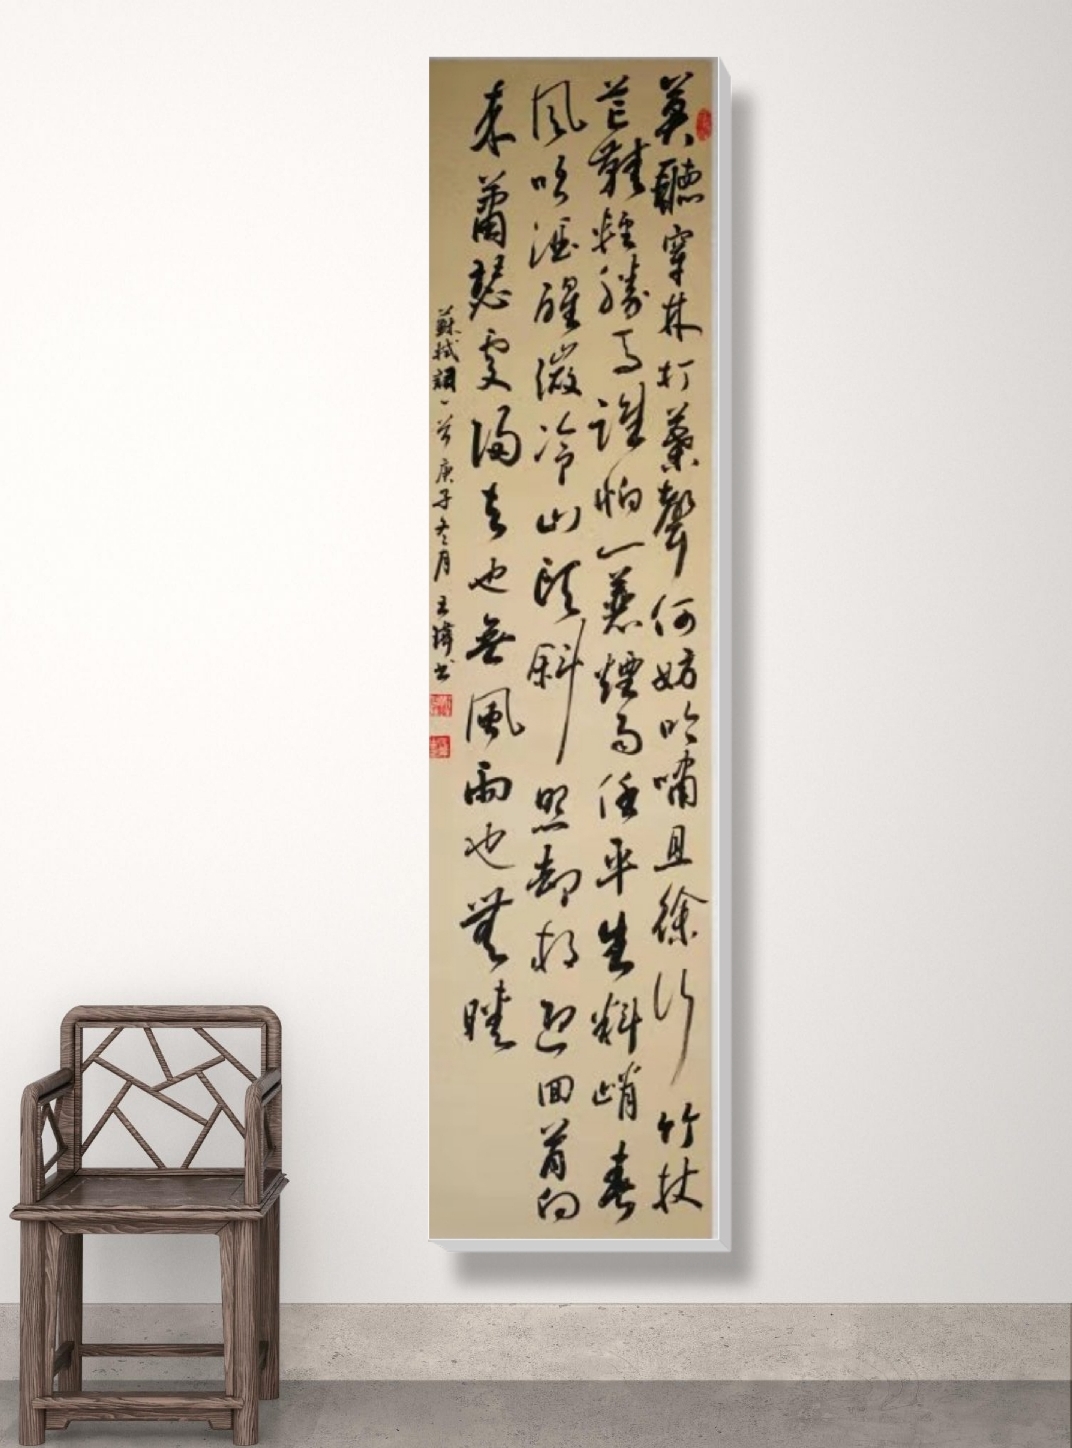 莫聽穿林打葉聲何妨吟嘯且徐行竹杖
芒鞋輕勝馬誰怕一蓑煙雨任平生料峭春
風吹酒醒微冷山頭斜照卻相迎回首向
來蕭瑟處歸去也無風雨也無晴
蘇軾詞一首庚子冬月王瑋書